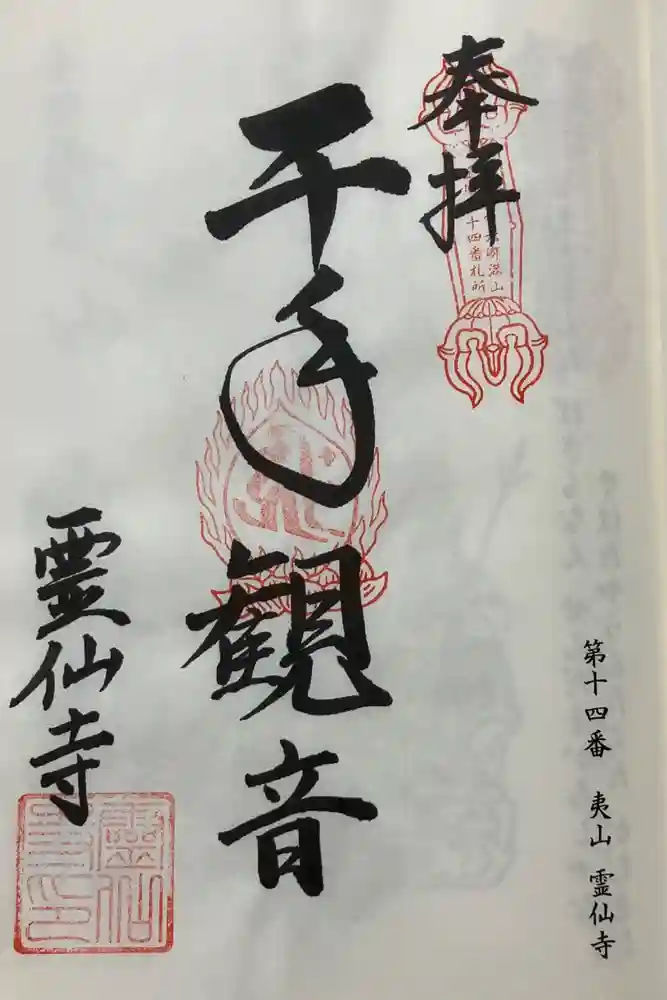 奉拝
十四番札所
千手観音
霊仙寺
霊仙寺印
第十四番 夷山 霊仙寺